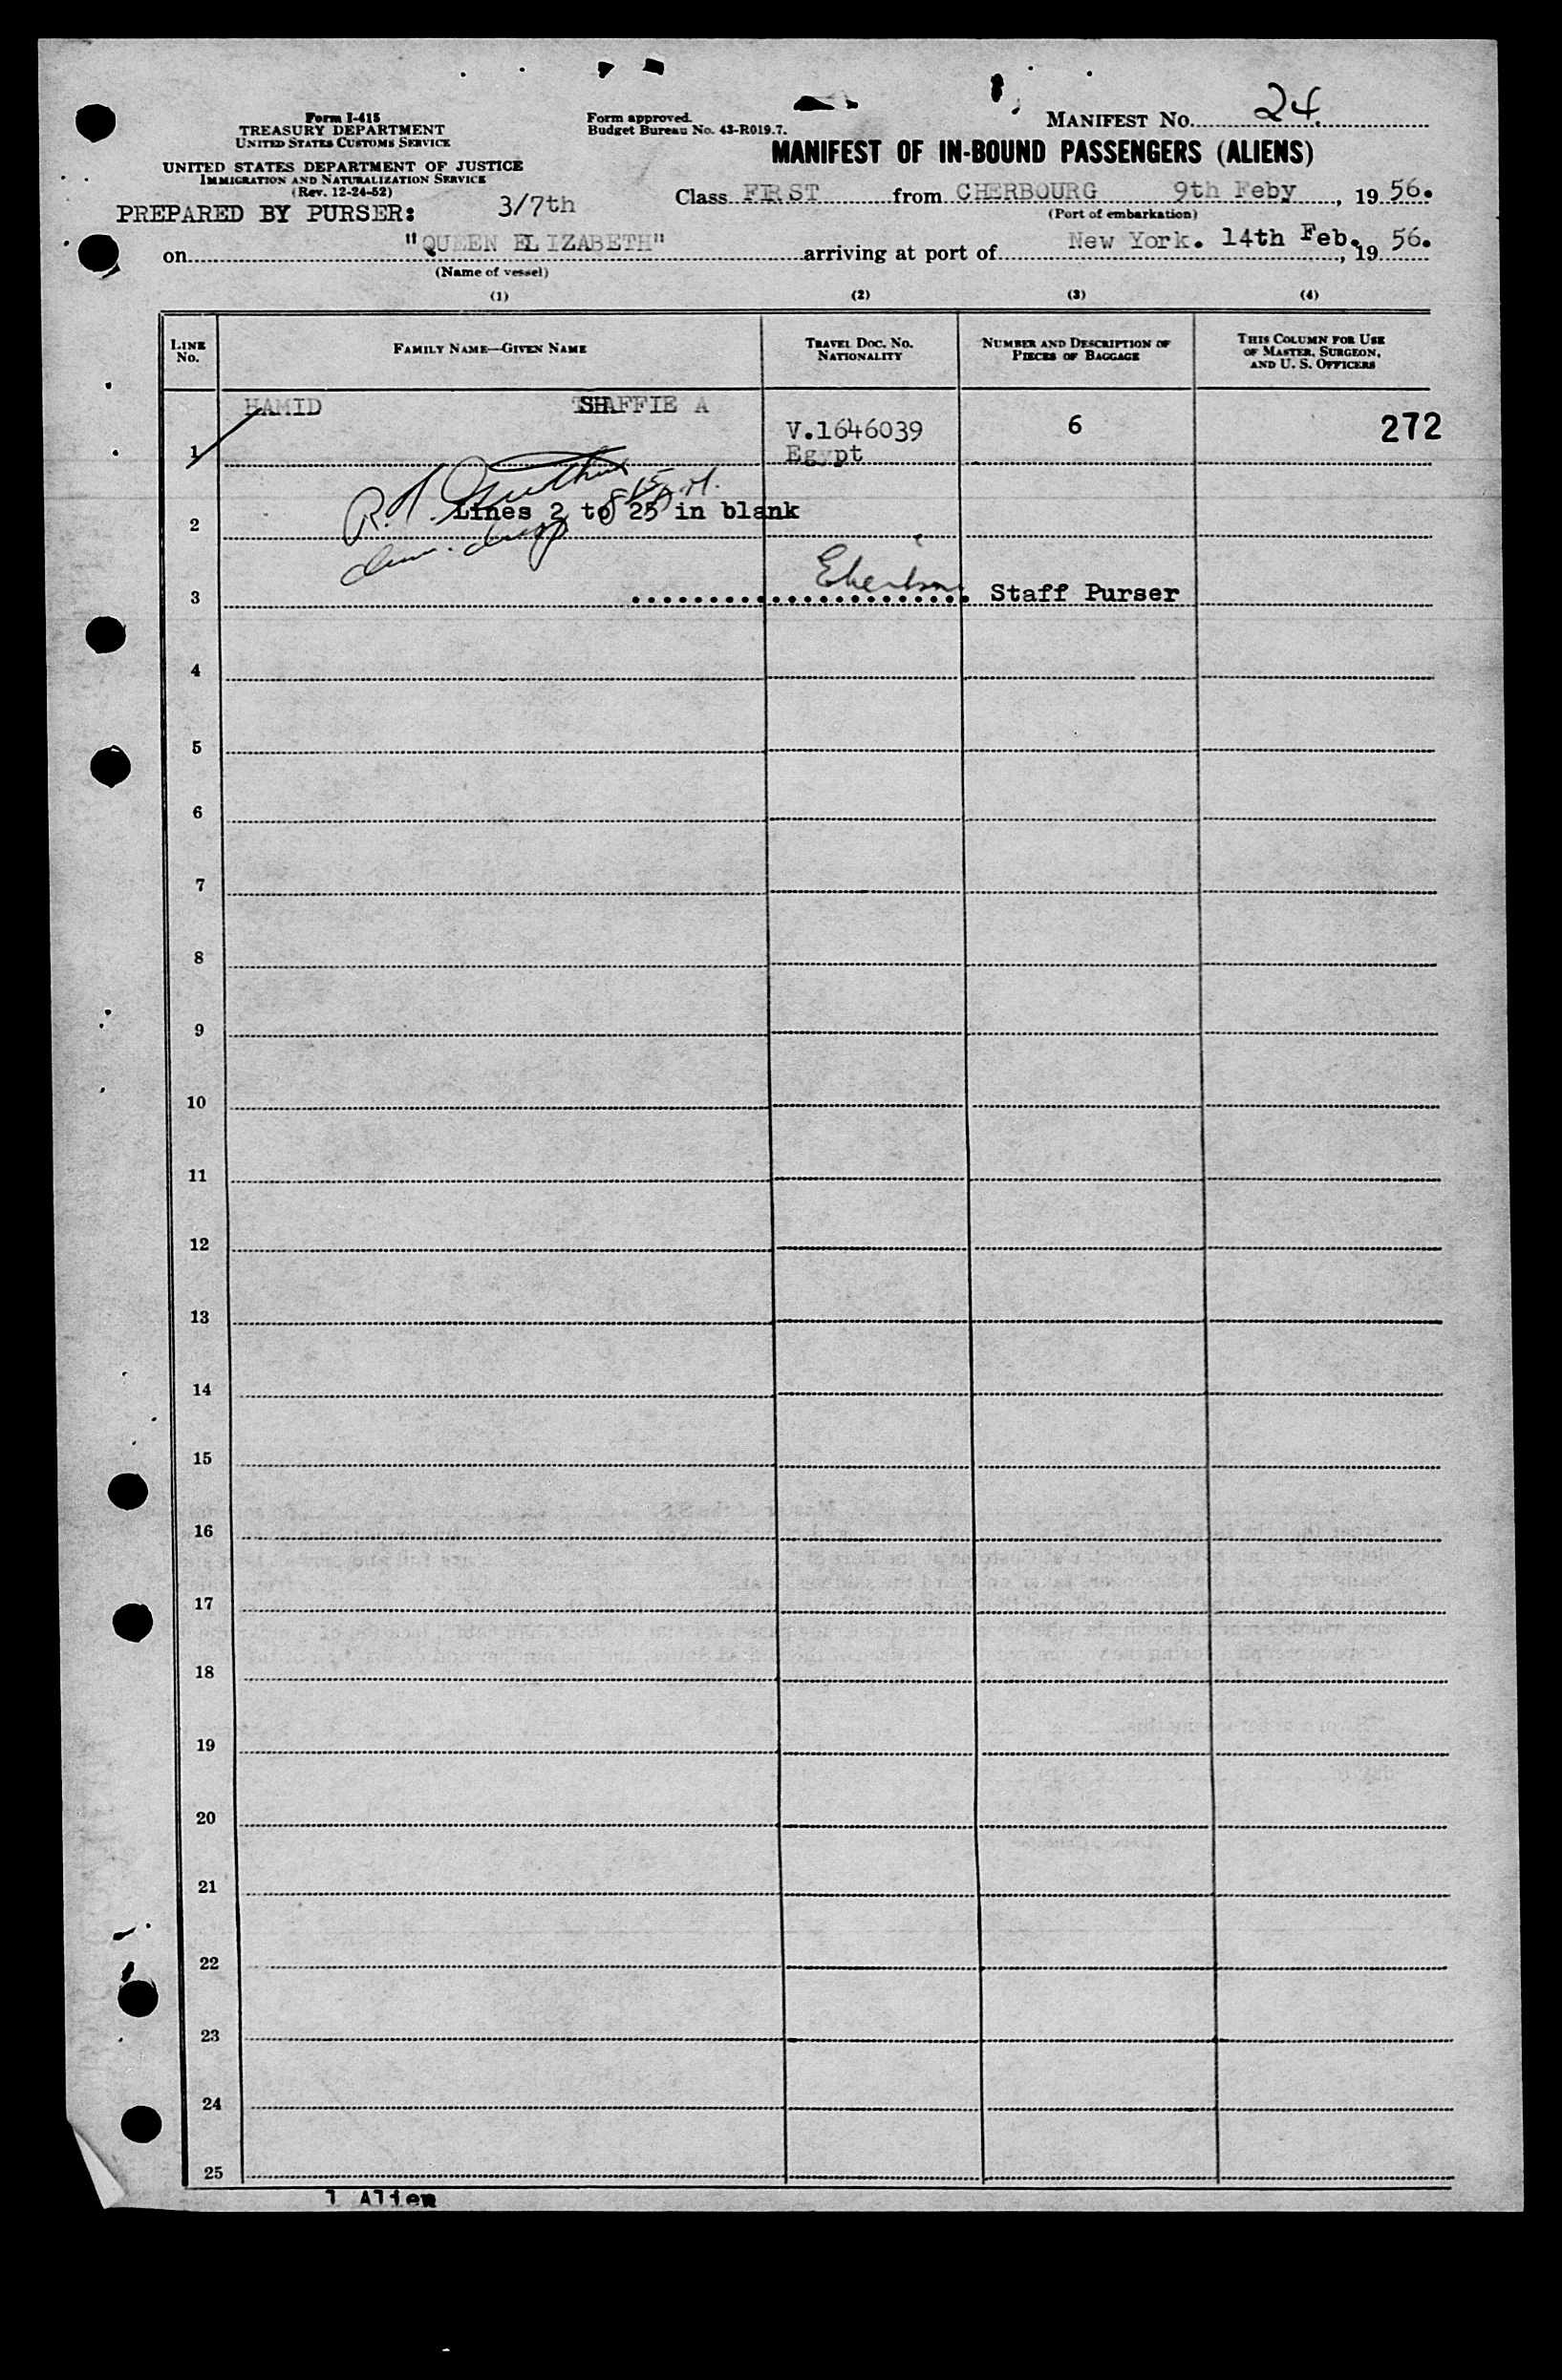 Form I-415
TREASURY DEPARTMENT
UNITED STATES CUSTOMS SERVICE
UNITED STATES DEPARTMENT OF JUSTICE
IMMIGRATION AND NATURALIZATION SERVICE
(Rev. 12-24-52)
PREPARED BY PURSER: 3/7th
Form approved.
Budget Bureau No. 43-R019.7.
MANIFEST No. 24.
MANIFEST OF IN-BOUND PASSENGERS (ALIENS)
Class FIRST from CHERBOURG 9th Feby, 1956.
(Port of embarkation)
on "QUEEN ELIZABETH" arriving at port of New York. 14th Feb., 1956.
(Name of vessel)
(1) (2) (3) (4)
LINE No.
FAMILY NAME—GIVEN NAME
TRAVEL DOC. NO. NATIONALITY
NUMBER AND DESCRIPTION OF PIECES OF BAGGAGE
THIS COLUMN FOR USE OF MASTER, SURGEON, AND U. S. OFFICERS
HAMID SHAFFIE A
1 V.1646039 6 272
Egypt
2 Lines 2 to 25 in blank
3 Staff Purser
4
5
6
7
8
9
10
11
12
13
14
15
16
17
18
19
20
21
22
23
24
25
1 Alien